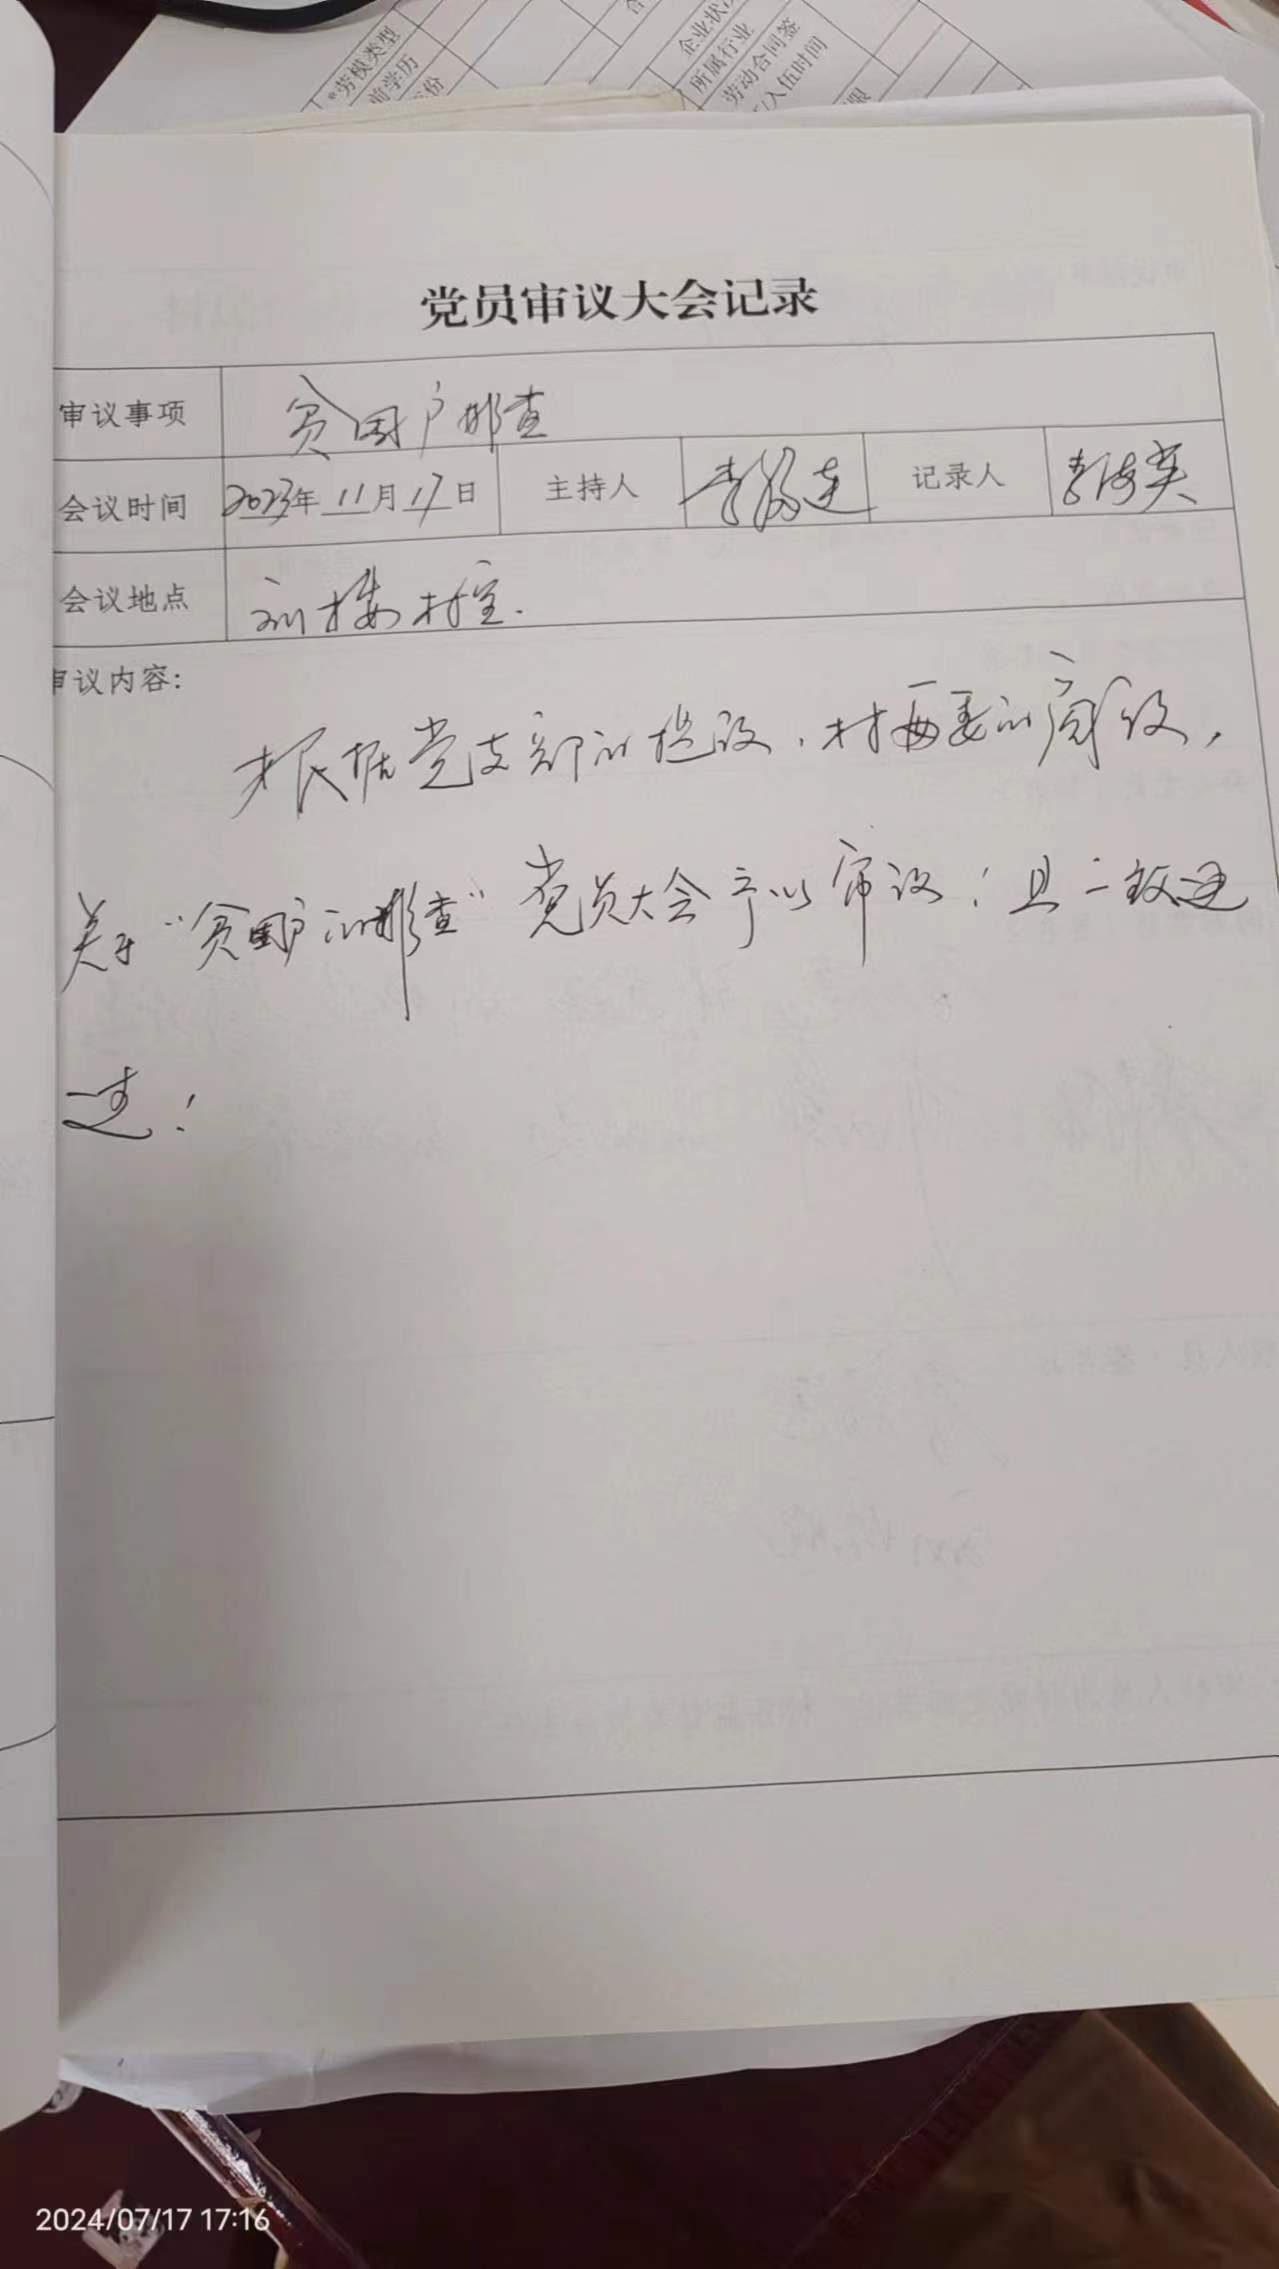 劳模类型
企业状况
前学历
所属行业
份
劳动合同签
入伍时间
党员审议大会记录
审议事项 贫困户排查
会议时间 2023年11月17日 主持人 记录人 李海英
会议地点 刘楼村室.
审议内容:
根据党支部的提议，村两委的商议，
关于“贫困户的排查”党员大会予以审议；且一致通
过！
2024/07/17 17:16